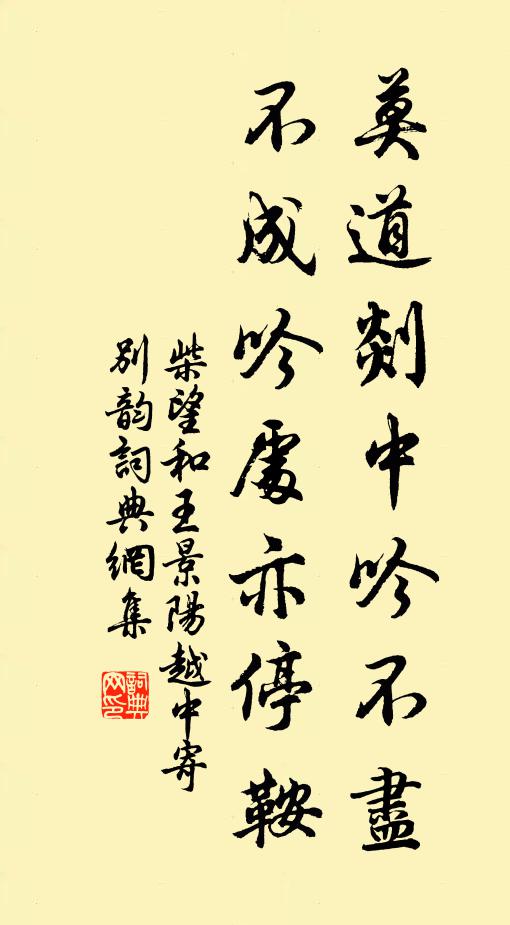 莫道剡中吟不盡
不成吟處亦停鞍
柴望和王景陽越中寄
別韵詞典網集
詞典網印